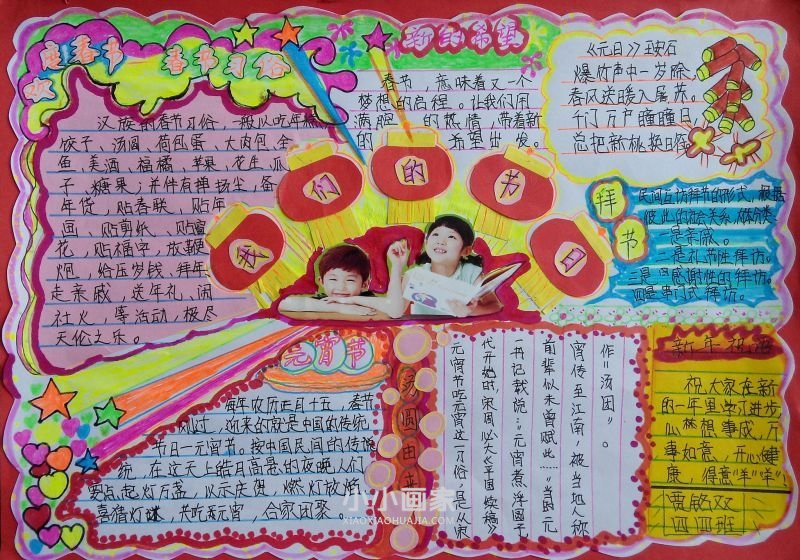 欢度春节
春节习俗
汉族的春节习俗，一般以吃年糕
饺子、汤圆、荷包蛋、大肉包、全
鱼、美酒、福橘、苹果、花生、瓜
子、糖果；并伴有掸扬尘、备
年货，贴春联、贴年
画、贴剪纸、贴窗
花、贴福字，放鞭
炮，给压岁钱、拜年
走亲戚，送年礼、闹
社火，等活动，极尽
天伦之乐。
新的希望
春节，意味着又一个
梦想的启程。让我们用
满腔的热情，带着新
的希望出发。
《元日》王安石
爆竹声中一岁除，
春风送暖入屠苏。
千门万户曈曈日，
总把新桃换旧符
我们的节日
拜节
民间互访拜节的形式，根据
彼此的社会关系，做分类：
一是亲戚。
二是礼节性拜访。
三是感谢性的拜访。
四是串门式拜访。
元宵节
每年农历正月十五，春节
刚过，迎来的就是中国的传统
节日一元宵节。按中国民间的传
统，在这天上皓月高悬的夜晚，人们
要点起灯万盏，以示庆贺。燃灯放焰
喜猜灯谜，共吃元宵，合家团聚。
汤圆由来
作"汤团"。
宵传至江南，被当地人称
前辈似未曾赋此……"当时元
一书记载说："元宵煮浮圆子
代开始时，宋周必大《平园续稿》
元宵节吃元宵这一习俗，是从宋
新年祝福
祝大家在新
的一年里学习进步
心想事成，万
事如意，开心健
康，得意"羊""羊"！
四四班
小小画家
XIAOXIAOHUAJIA.COM